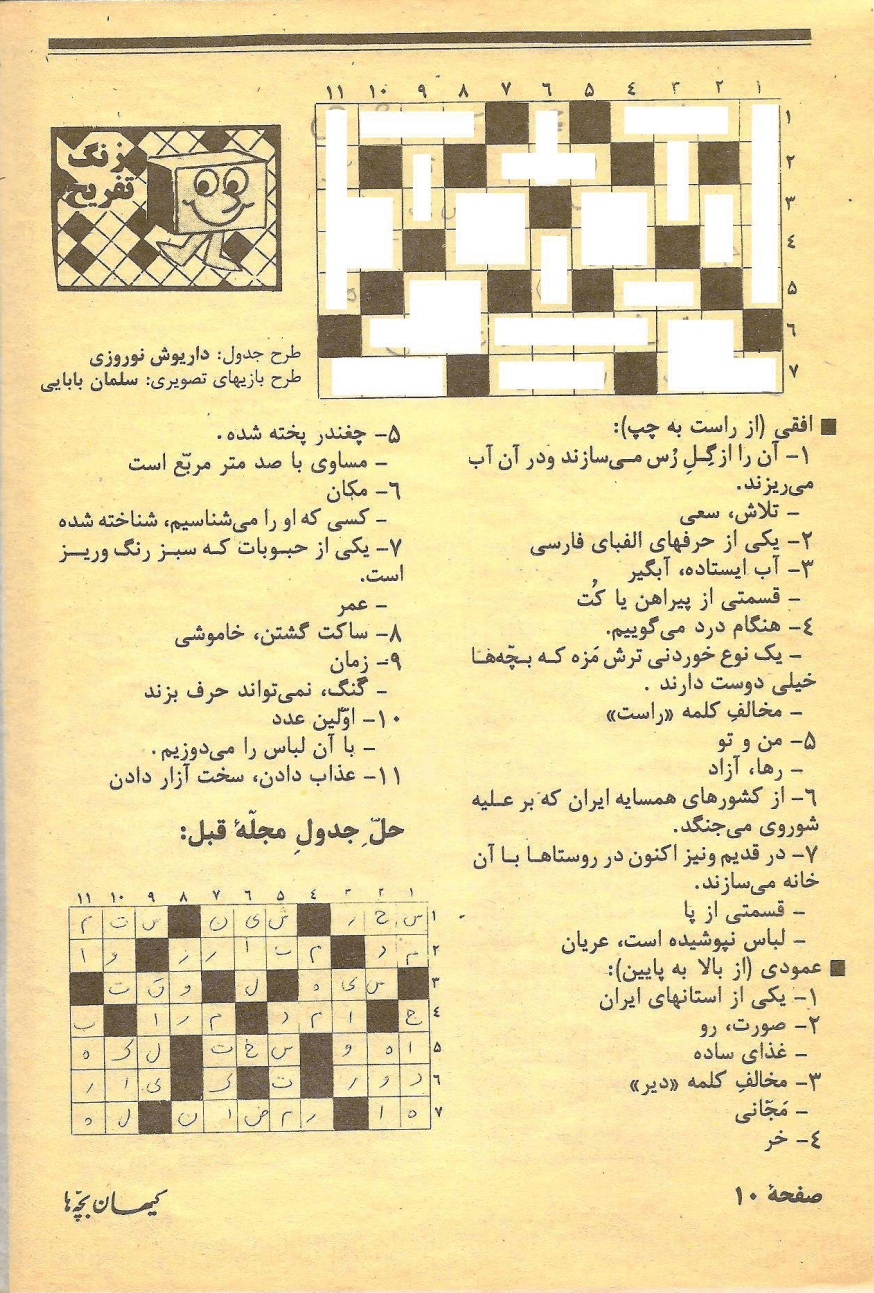 زنگ
تفریح
۱۱ ۱۰ ۹ ۸ ۷ ۶ ۵ ٤ ۳ ۲ ۱
۱
۲
۳
٤
۵
٦
۷
طرح جدول: داریوش نوروزی
طرح بازیهای تصویری: سلمان بابایی
افقی (از راست به چپ):
۱– آن را از گِلِ رُس می‌سازند ودر آن آب
می‌ریزند.
– تلاش، سعی
۲– یکی از حرفهای الفبای فارسی
۳– آب ایستاده، آبگیر
– قسمتی از پیراهن یا کُت
٤– هنگام درد می‌گوییم.
– یک نوع خوردنی ترش مَزه که بچّه‌ها
خیلی دوست دارند .
– مخالفِ کلمه «راست»
۵– من و تو
– رها، آزاد
٦– از کشورهای همسایه ایران که بر علیه
شوروی می‌جنگد.
۷– در قدیم ونیز اکنون در روستاها با آن
خانه می‌سازند.
– قسمتی از پا
– لباس نپوشیده است، عریان
عمودی (از بالا به پایین):
۱– یکی از استانهای ایران
۲– صورت، رو
– غذای ساده
۳– مخالفِ کلمه «دیر»
– مَجّانی
٤– خر
۵– چغندر پخته شده.
– مساوی با صد متر مربّع است
٦– مکان
– کسی که او را می‌شناسیم، شناخته شده
۷– یکی از حبوبات که سبز رنگ وریز
است.
– عمر
۸– ساکت گشتن، خاموشی
۹– زمان
– گنگ، نمی‌تواند حرف بزند
۱۰– اوّلین عدد
– با آن لباس را می‌دوزیم.
۱۱– عذاب دادن، سخت آزار دادن
حلّ جدولِ مجلّهٔ قبل:
۱۱ ۱۰ ۹ ۸ ۷ ٦ ۵ ٤ ۳ ۲ ۱
۱ س ح ر ش ی ن س ت م
۲ م د م ب ا ر ز و ا
۳ س ی ا ه ل و ق ت
٤ ج ا م د م ر ا ب
۵ ا ه و س خ ت ل ک ه
٦ د و ر ت ک ی ا ر
۷ ه ا ر م ض ا ن ل ه
صفحهٔ ۱۰
کیهان بچّه‌ها